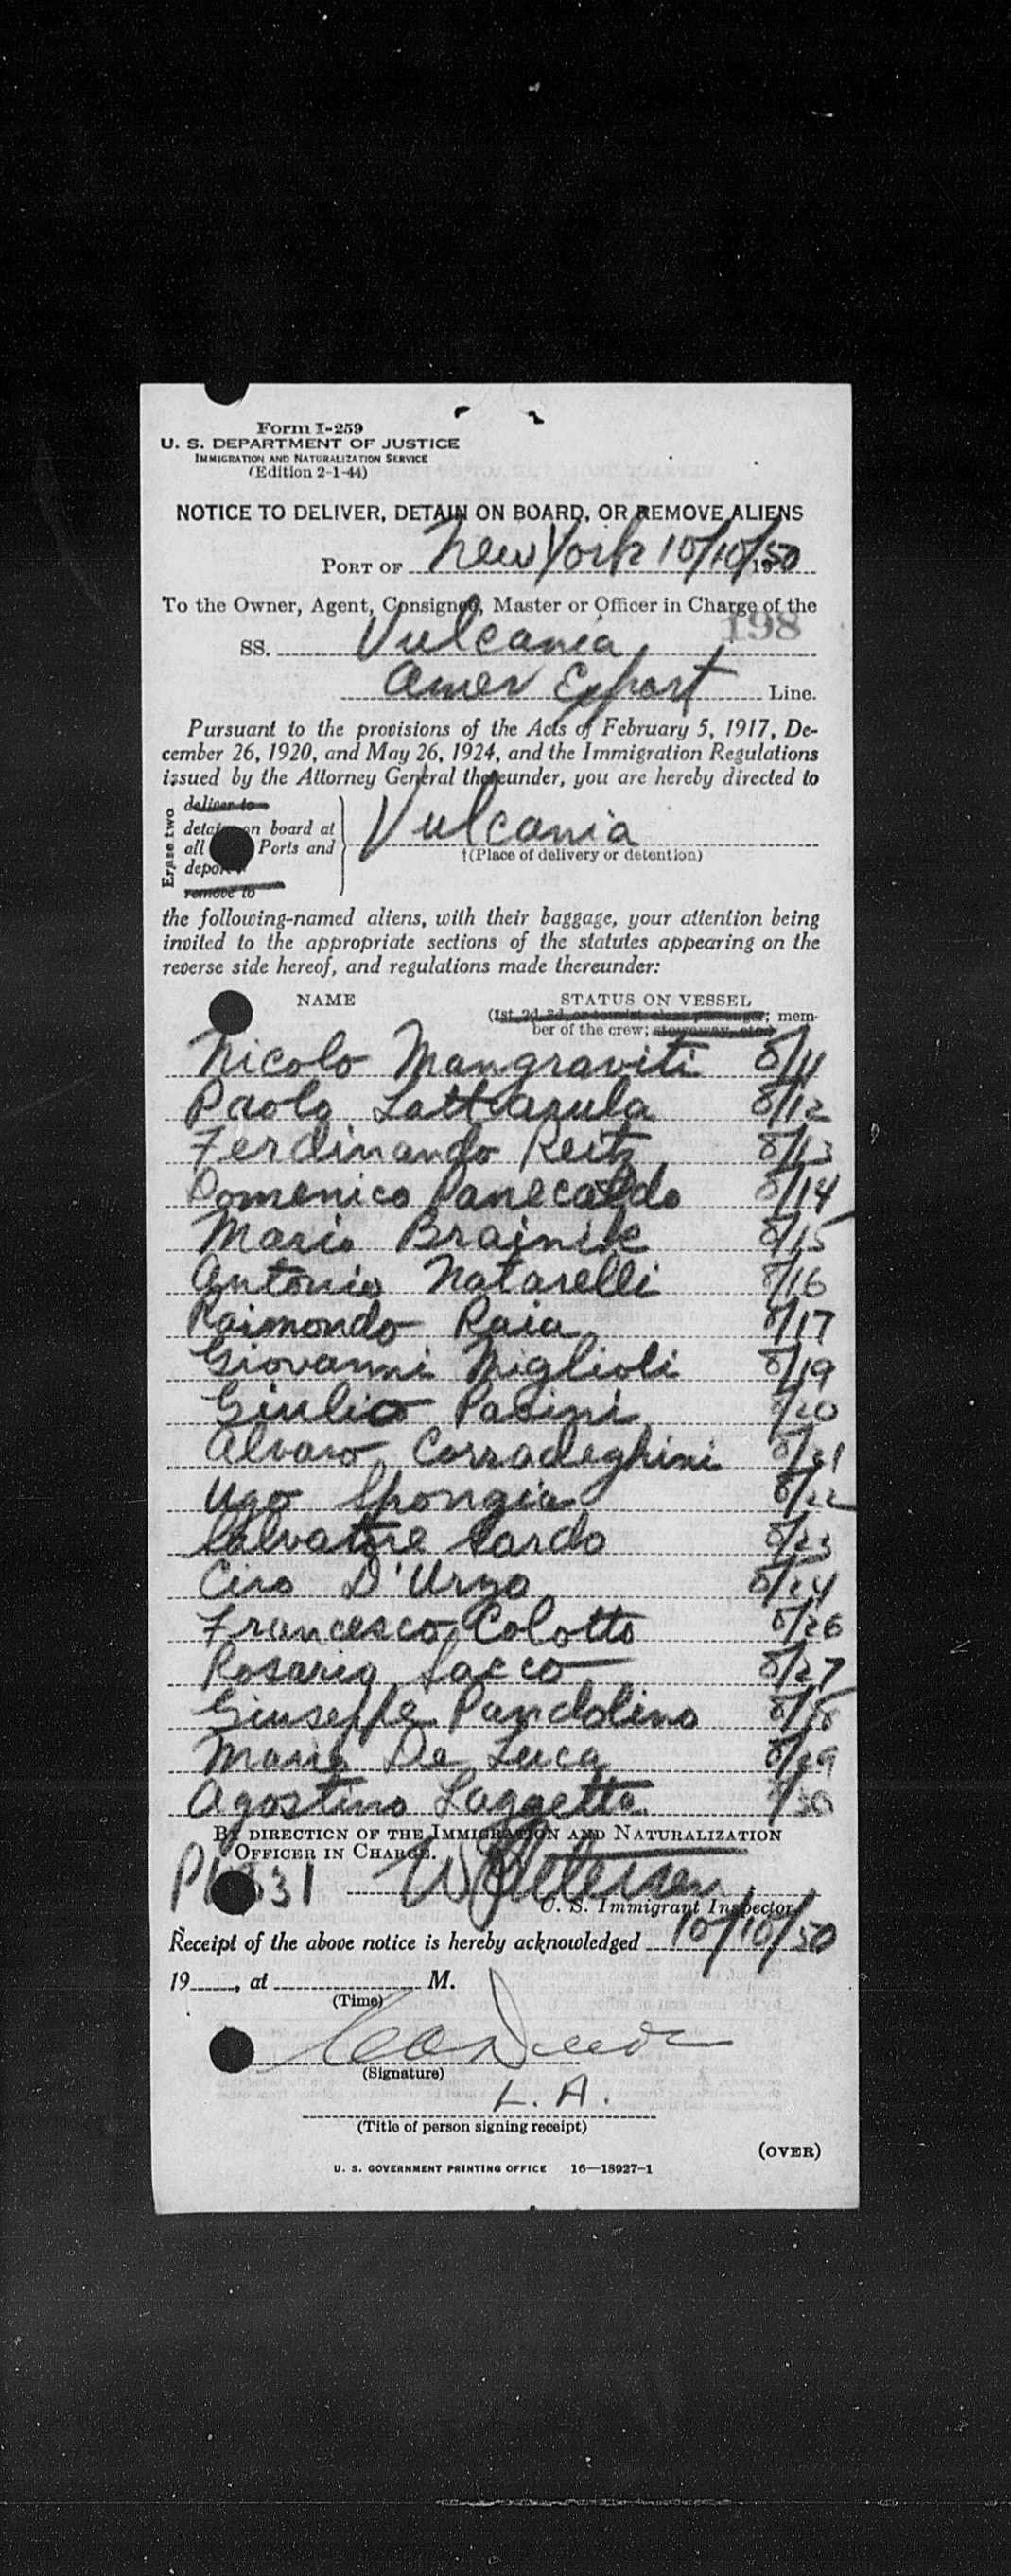 Form I-259
U. S. DEPARTMENT OF JUSTICE
IMMIGRATION AND NATURALIZATION SERVICE
(Edition 2-1-44)
NOTICE TO DELIVER, DETAIN ON BOARD, OR REMOVE ALIENS
PORT OF New York 10/10/50
To the Owner, Agent, Consignee, Master or Officer in Charge of the
198
SS. Vulcania
Amer Export Line.
Pursuant to the provisions of the Acts of February 5, 1917, De-
cember 26, 1920, and May 26, 1924, and the Immigration Regulations
issued by the Attorney General thereunder, you are hereby directed to
Erase two
deliver to
detain on board at
all Ports and
deport
remove to
Vulcania
†(Place of delivery or detention)
the following-named aliens, with their baggage, your attention being
invited to the appropriate sections of the statutes appearing on the
reverse side hereof, and regulations made thereunder:
NAME STATUS ON VESSEL
(1st, 2d, 3d, or tourist class passenger; mem-
ber of the crew; stowaway, etc.)
Nicolo Mangraviti 8/11
Paolo Lattarula 8/12
Ferdinando Reitz 8/13
Domenico Panecaldo 8/14
Mario Brainik 8/15
Antonio Natarelli 8/16
Raimondo Raia 8/17
Giovanni Miglioli 8/19
Giulio Pacini 8/20
Alvaro Corradeghini 8/21
Ugo Spongia 8/22
Salvatore Sardo 8/23
Ciro D'Urzo 8/24
Francesco Colotto 8/26
Rosario Sacco 8/27
Giuseppe Pandolino 8/28
Mario De Luca 8/29
Agostino Laggetta 8/30
BY DIRECTION OF THE IMMIGRATION AND NATURALIZATION
OFFICER IN CHARGE.
U. S. Immigrant Inspector
Receipt of the above notice is hereby acknowledged 10/10/50
19 , at M.
(Time)
(Signature)
L. A.
(Title of person signing receipt)
(OVER)
U. S. GOVERNMENT PRINTING OFFICE 16—18927-1